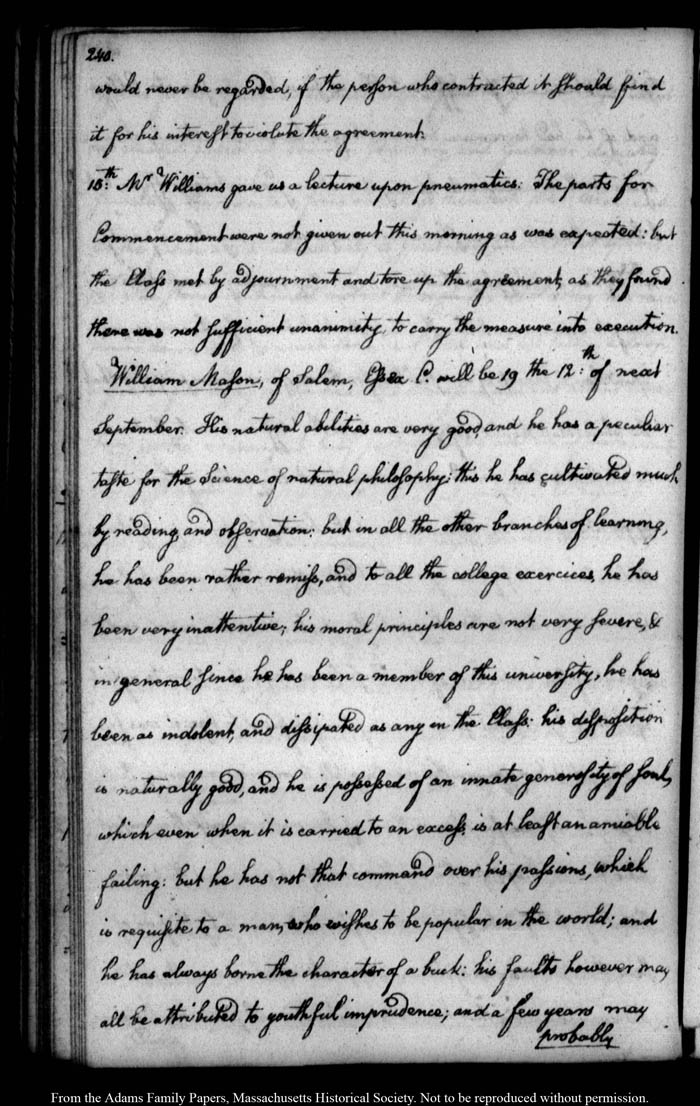 240.
would never be regarded, if the person who contracted it should find
it for his interest to violate the agreement.
18:th Mr Williams gave us a lecture upon pneumatics. The parts for
Commencement were not given out this morning as was expected: but
the Class met by adjournment and tore up the agreement, as they found
there was not sufficient unanimity, to carry the measure into execution.
William Mason, of Salem, Essex C. will be 19 the 12:th of next
September. His natural abilities are very good, and he has a peculiar
taste for the science of natural philosophy; this he has cultivated much
by reading, and observation: but in all the other branches of learning,
he has been rather remiss, and to all the college exercices, he has
been very inattentive; his moral principles are not very severe, &
in general since he has been a member of this university, he has
been as indolent, and dissipated as any in the Class: his disposition
is naturally good, and he is possessed of an innate generosity of soul,
which even when it is carried to an excess, is at least an amiable
failing: but he has not that command over his passions, which
is requisite to a man, who wishes to be popular in the world; and
he has always borne the character of a buck: his faults however may
all be attributed to youthful imprudence; and a few years may
probably
From the Adams Family Papers, Massachusetts Historical Society. Not to be reproduced without permission.